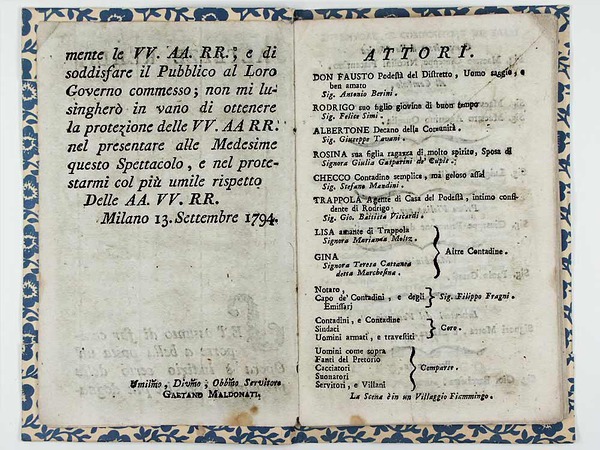 mente le VV. AA. RR.; e di
soddisfare il Pubblico al Loro
Governo commesso; non mi lu-
singherò in vano di ottenere
la protezione delle VV. AA RR.
nel presentare alle Medesime
questo Spettacolo, e nel prote-
starmi col più umile rispetto
Delle AA. VV. RR.
Milano 13. Settembre 1794.
Umiliño, Diviño, Obbiño Servitore
GAETANO MALDONATI.
ATTORI.
DON FAUSTO Podestà del Distretto, Uomo saggio, e
ben amato
Sig. Antonio Berini.
RODRIGO suo figlio giovine di buon tempo
Sig. Felice Simi.
ALBERTONE Decano della Comunità.
Sig. Giuseppe Tavani.
ROSINA sua figlia ragazza di molto spirito, Sposa di
Signora Giulia Gasparini de' Cupis.
CHECCO Contadino semplice, mà geloso assai
Sig. Stefano Mandini.
TRAPPOLA Agente di Casa del Podestà, intimo confi-
dente di Rodrigo
Sig. Gio. Battista Viscardi.
LISA amante di Trappola
Signora Marianna Moltz.
GINA
Signora Teresa Cattanea
detta Marchesina.
Altre Contadine.
Notaro,
Capo de' Contadini, e degli
Emissari
Sig. Filippo Fragni.
Contadini, e Contadine
Sindaci
Uomini armati, e travestiti
Coro.
Uomini come sopra
Fanti del Pretorio
Cacciatori
Suonatori
Servitori, e Villani
Comparse.
La Scena è in un Villaggio Fiammingo.